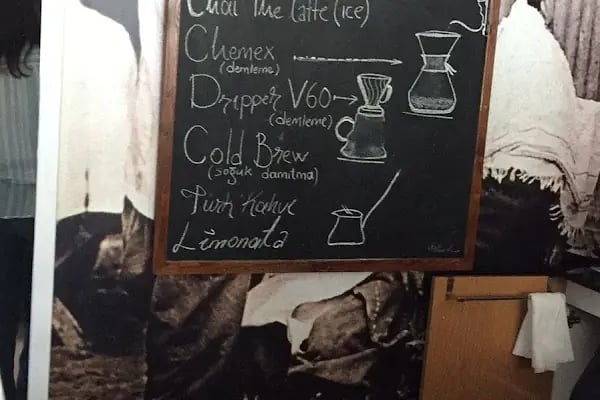 Chai The Latte (ice)
Chemex
(demleme)
Dripper V60
(demleme)
Cold Brew
(soğuk damıtma)
Türk Kahve
Limonata